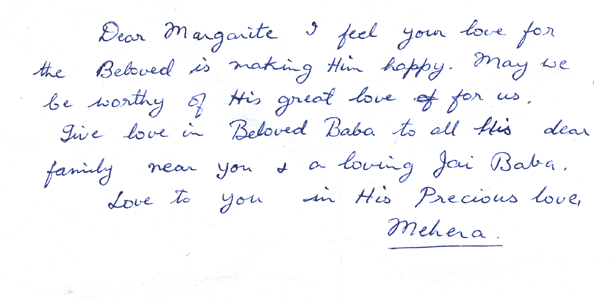 Dear Margarite I feel your love for
the Beloved is making Him happy. May we
be worthy of His great love of for us.
Give love in Beloved Baba to all His dear
family near you & a loving Jai Baba.
Love to you in His Precious love,
Mehera.